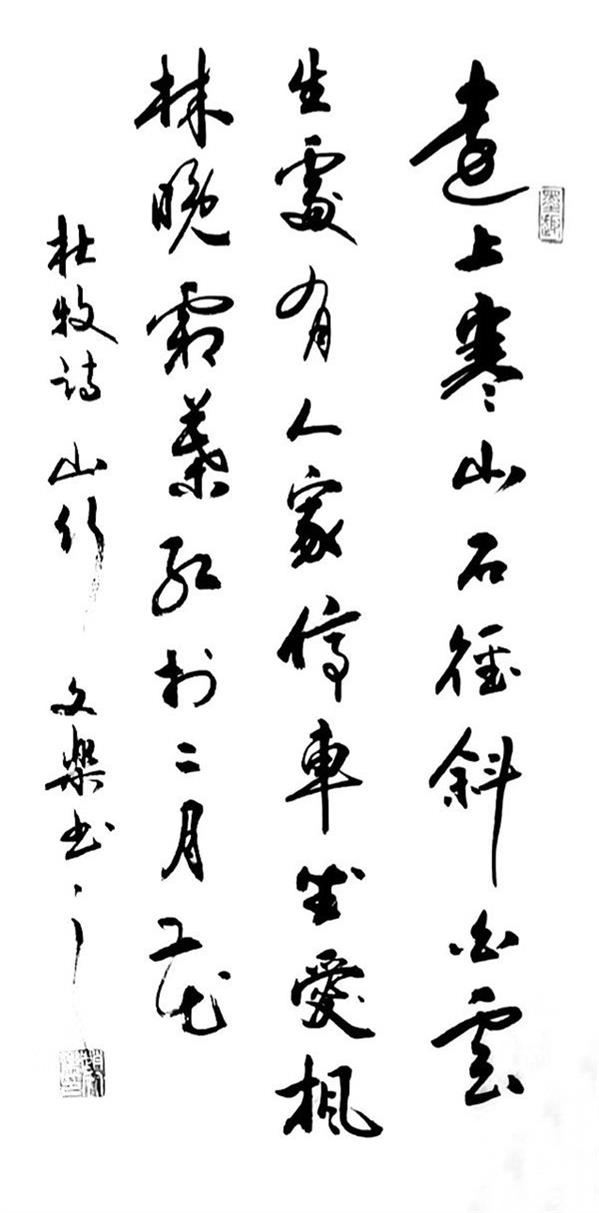 遠上寒山石徑斜白雲
生處有人家停車坐愛楓
林晚霜葉紅於二月花
杜牧詩 山行 文樂書